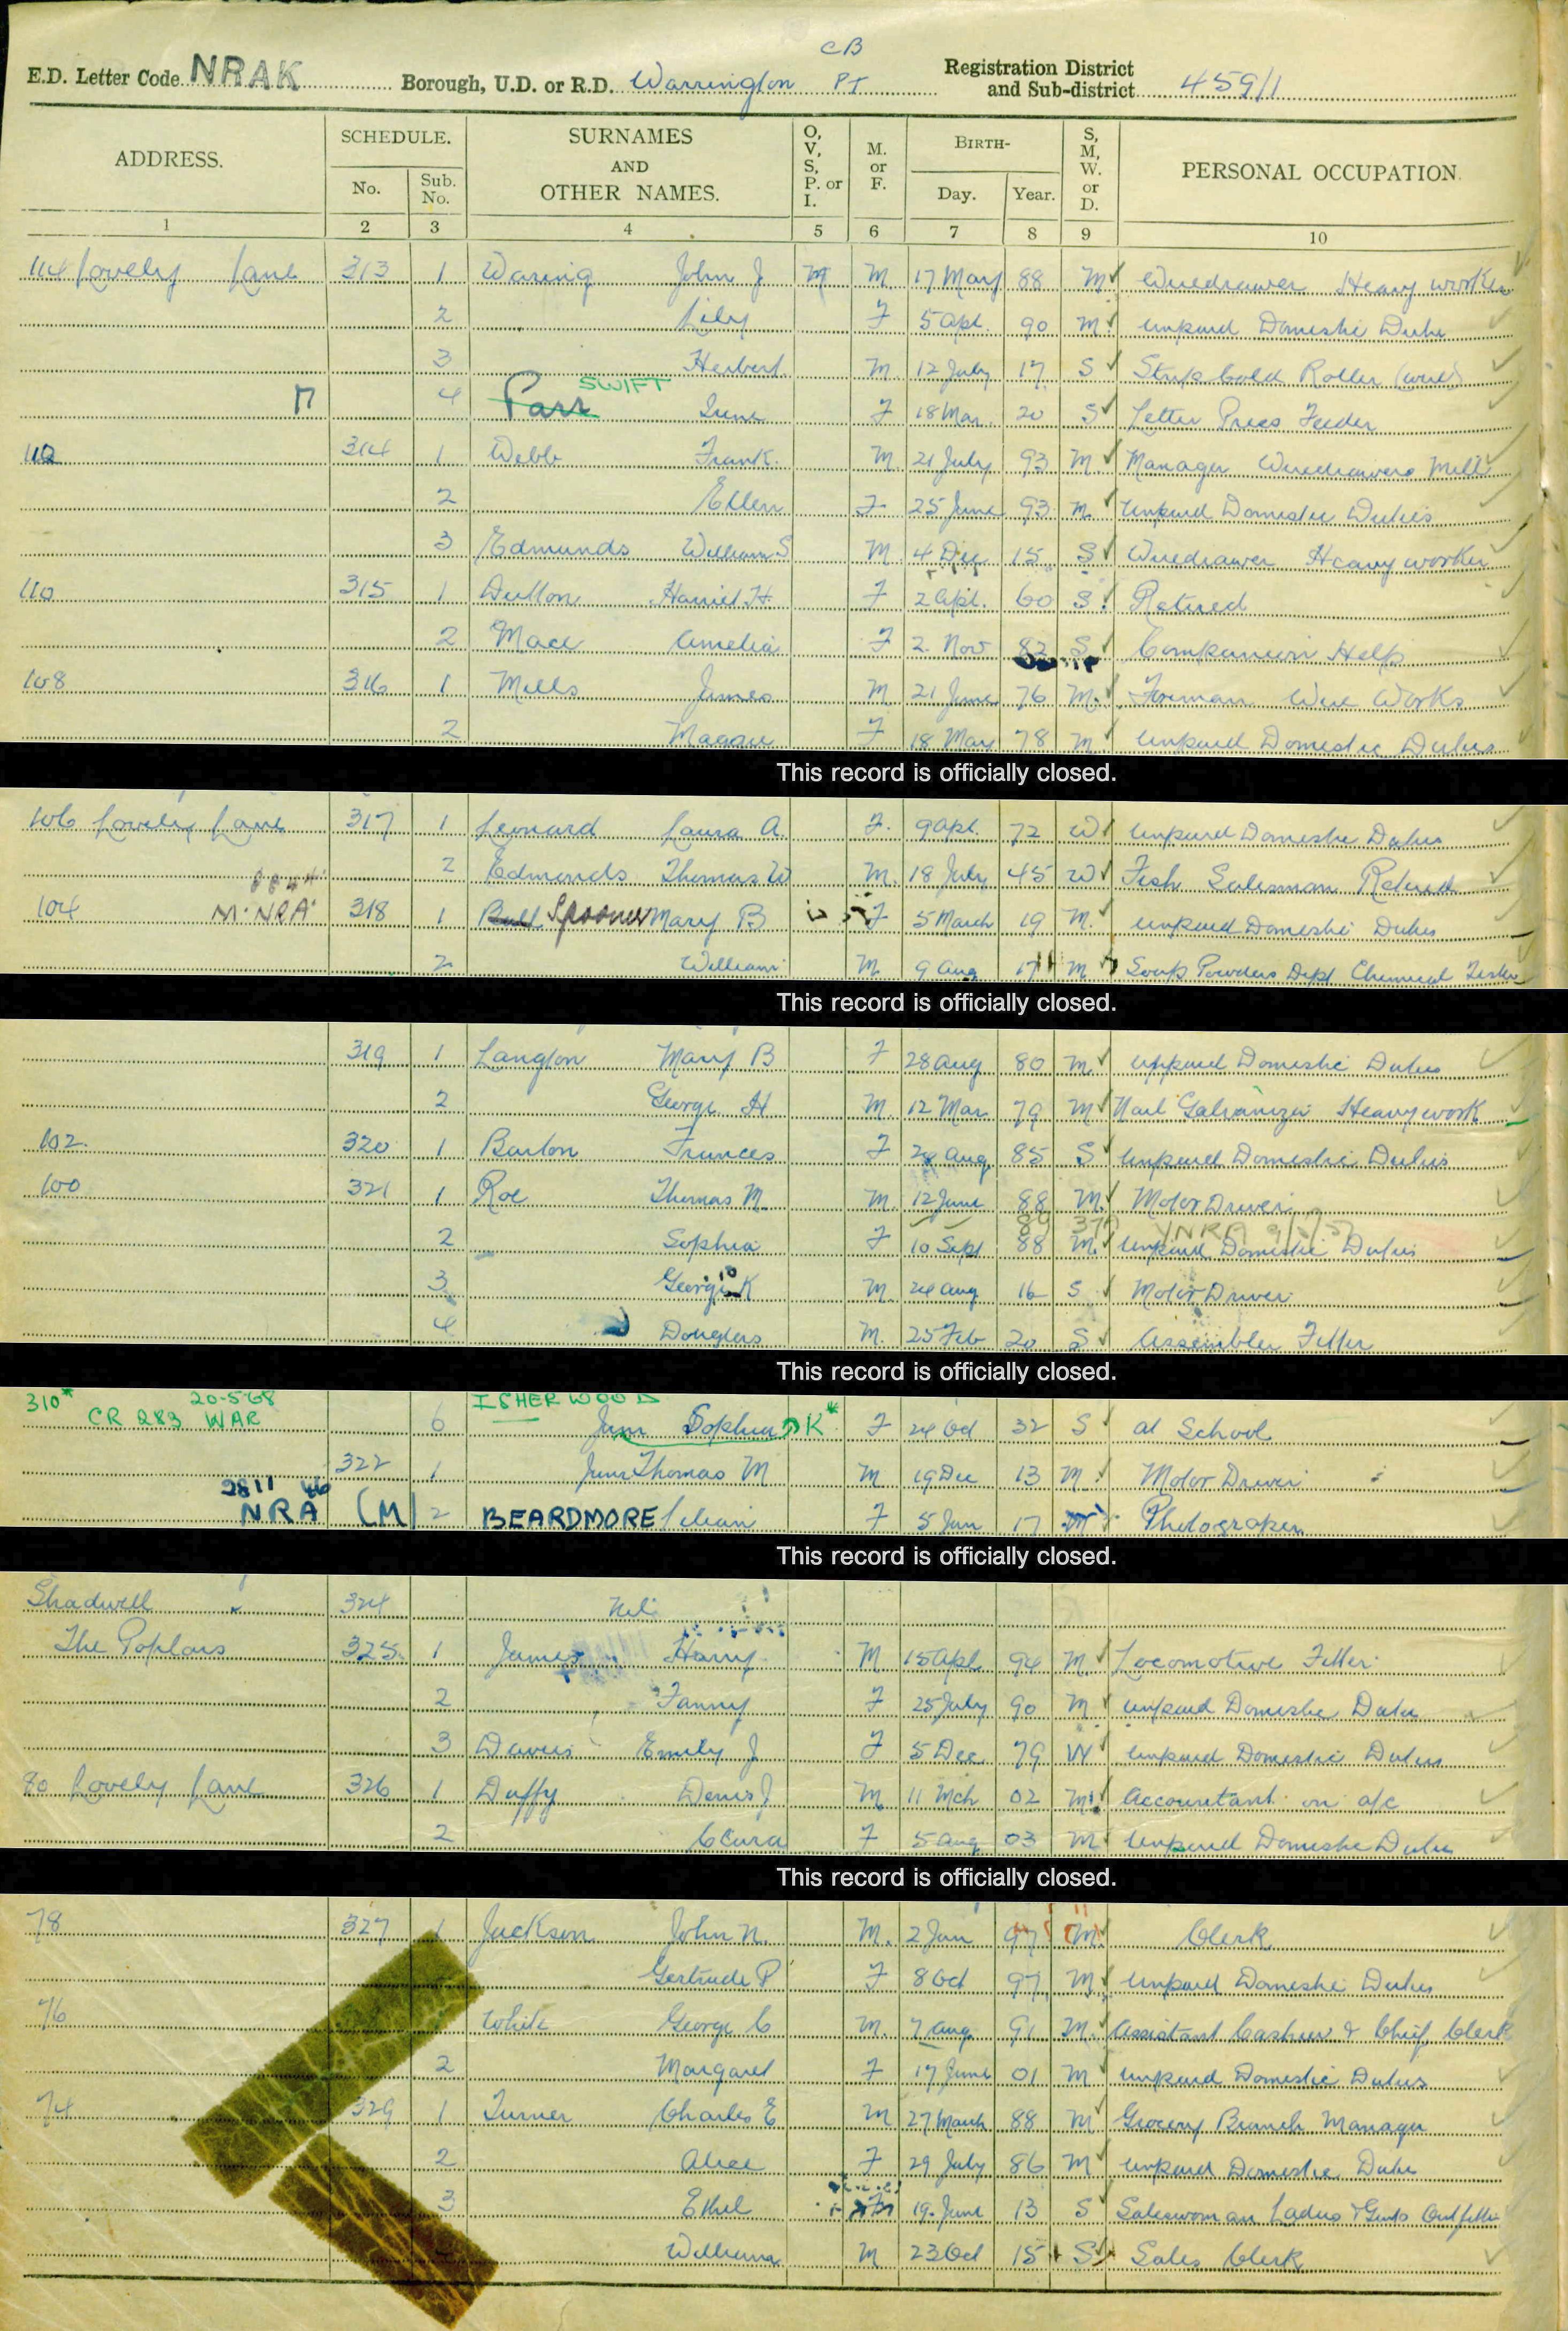 CB
E.D. Letter Code NRAK Borough, U.D. or R.D. Warrington PT Registration District and Sub-district 459/1
ADDRESS. SCHEDULE. No. Sub. No. SURNAMES AND OTHER NAMES. O, V, S, P. or I. M. or F. BIRTH- Day. Year. S, M, W. or D. PERSONAL OCCUPATION.
1 2 3 4 5 6 7 8 9 10
114 Lovely Lane 313 1 Waring John J M M 17 May 88 M Wiredrawer Heavy worker
2 Lily F 5 Apl. 90 M Unpaid Domestic Duties
3 Herbert M 12 July 17 S Strip Cold Roller (wire)
SWIFT
4 Parr Irene F 18 Mar 20 S Letter Press Feeder
112 314 1 Webb Frank M 21 July 93 M Manager Wiredrawers Mill
2 Ellen F 25 June 93 M Unpaid Domestic Duties
3 Edmunds William S M 4 Dec 15 S Wiredrawer Heavy worker
110 315 1 Dutton Harriet H F 2 Apl. 60 S Retired
2 Mace Amelia F 2 Nov 82 S Companion Help
108 316 1 Mills James M 21 June 76 M Foreman Wire Works
2 Maggie F 18 May 78 M Unpaid Domestic Duties
This record is officially closed.
106 Lovely Lane 317 1 Leonard Laura A. F 9 Apl. 72 W Unpaid Domestic Duties
2 Edmonds Thomas W M 18 July 45 W Fish Salesman Retired
104 M. NRA 318 1 Spooner Mary B F 5 March 19 M Unpaid Domestic Duties
2 William M 9 Aug 17 M Soap Powders Dept Chemical Tester
This record is officially closed.
319 1 Langton Mary B F 28 Aug 80 M Unpaid Domestic Duties
2 George H M 12 Mar 79 M Nail Galvanizer Heavy work
102 320 1 Barton Frances F 28 Aug 85 S Unpaid Domestic Duties
100 321 1 Roe Thomas M. M 12 June 88 M Motor Driver
89 377 VNRA
2 Sophia F 10 Sept 88 M Unpaid Domestic Duties
3 George K M 24 Aug 16 S Motor Driver
4 Douglas M 25 Feb 20 S Assembler Fitter
This record is officially closed.
310* 20-5-68 ISHERWOOD
CR 283 WAR 6 Sophia K* F 24 Oct 32 S At School
322 1 Junr Thomas M M 19 Dec 13 M Motor Driver
28 11 46
NRA (M) 2 BEARDMORE Lilian F 5 Jan 17 M Photographer
This record is officially closed.
Shadwell 324 Nil
The Poplars 325 1 James Harry M 15 Apl 94 M Locomotive Fitter
2 Fanny F 25 July 90 M Unpaid Domestic Duties
3 Davies Emily J F 5 Dec 79 W Unpaid Domestic Duties
80 Lovely Lane 326 1 Duffy Denis J M 11 Mch 02 M Accountant on a/c
2 Clara F 5 Aug 03 M Unpaid Domestic Duties
This record is officially closed.
78 327 1 Jackson John N. M 2 Jan 97 M Clerk
Gertrude P F 8 Oct 97 M Unpaid Domestic Duties
76 White George C M 7 Aug 91 M Assistant Cashier & Chief Clerk
2 Margaret F 17 June 01 M Unpaid Domestic Duties
74 329 1 Turner Charles E M 27 March 88 M Grocery Branch Manager
2 Alice F 29 July 86 M Unpaid Domestic Duties
3 Ethel F 19 June 13 S Saleswoman Ladies & Gents Outfitter
William M 23 Oct 15 S Sales Clerk